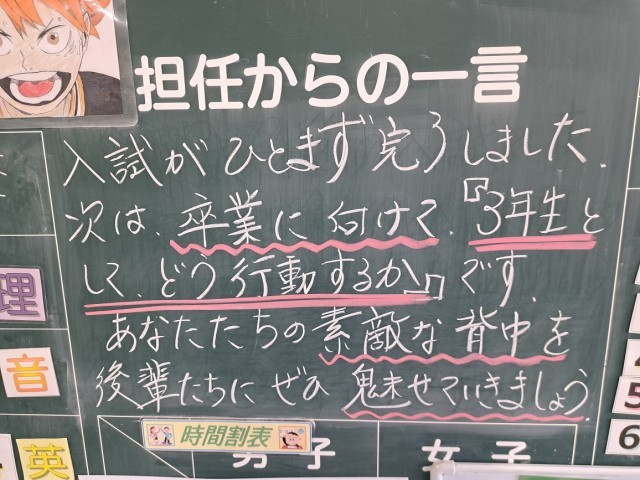 担任からの一言
入試がひとまず完了しました.
次は、卒業に向けて、『3年生と
して、どう行動するか』です.
あなたたちの素敵な背中を
後輩たちにぜひ魅せていきましょう.
理
音
英
時間割表
男子
女子
5
6